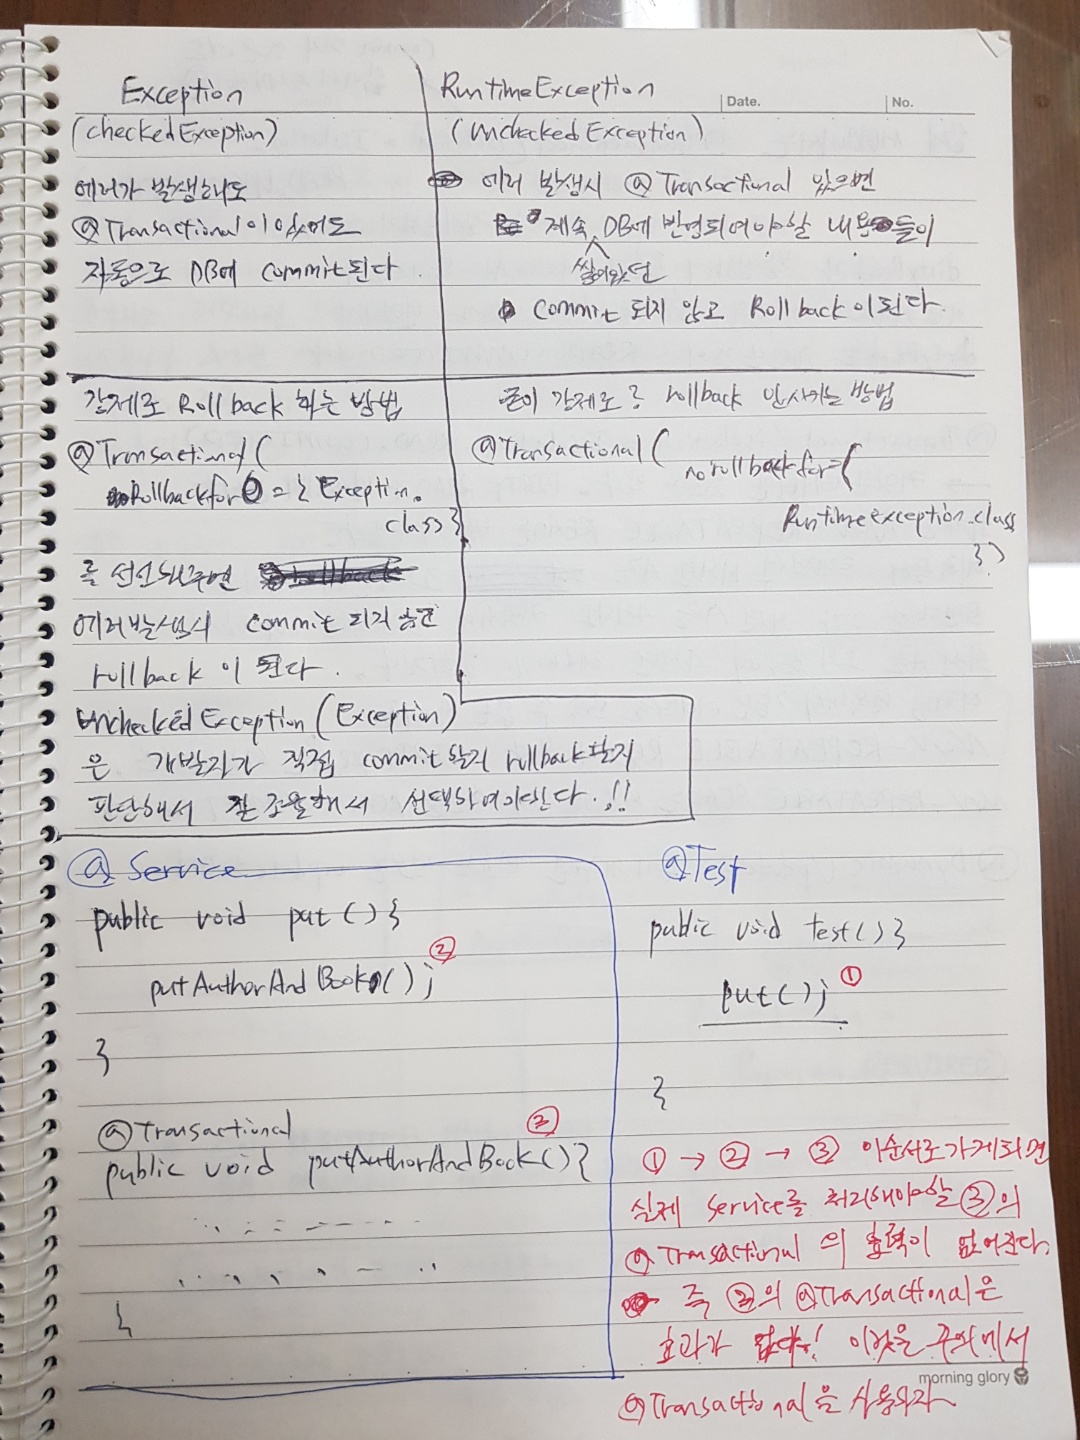 Exception
(checkedException)
에러가 발생해도
@Transactional이 있어도
자동으로 DB에 commit된다.
RuntimeException
(UncheckedException)
Date.
No.
에러 발생시 @Transactional 있으면
계속 쌓여왔던 DB에 반영되어야할 내용들이
commit 되지 않고 Rollback이된다.
강제로 Rollback 하는 방법
@Transactional (
Rollbackfor = { Exception.
class}
를 선언해주면
에러발생시 commit 되지
rollback 이 된다.
강제로 rollback 안시키는 방법
@Transactional (
norollbackfor={
Runtimeexception.class
})
UncheckedException(Exception)
은 개발자가 직접 commit할지 rollback할지
판단해서 잘 조율해서 선택하여야한다.!!
@Service
public void put () {
putAuthorAndBook(); ②
}
@Transactional
public void putAuthorAndBook(){
}
@Test
public void test() {
put(); ①
}
① → ② → ③ 이순서로가게되면
실제 Service를 처리해야할 ③의
@Transactional 의 효력이 없어진다.
즉 @Transactional은
효과가 없다! 이것을 주의해서
morning glory
@Transactional을 사용하자